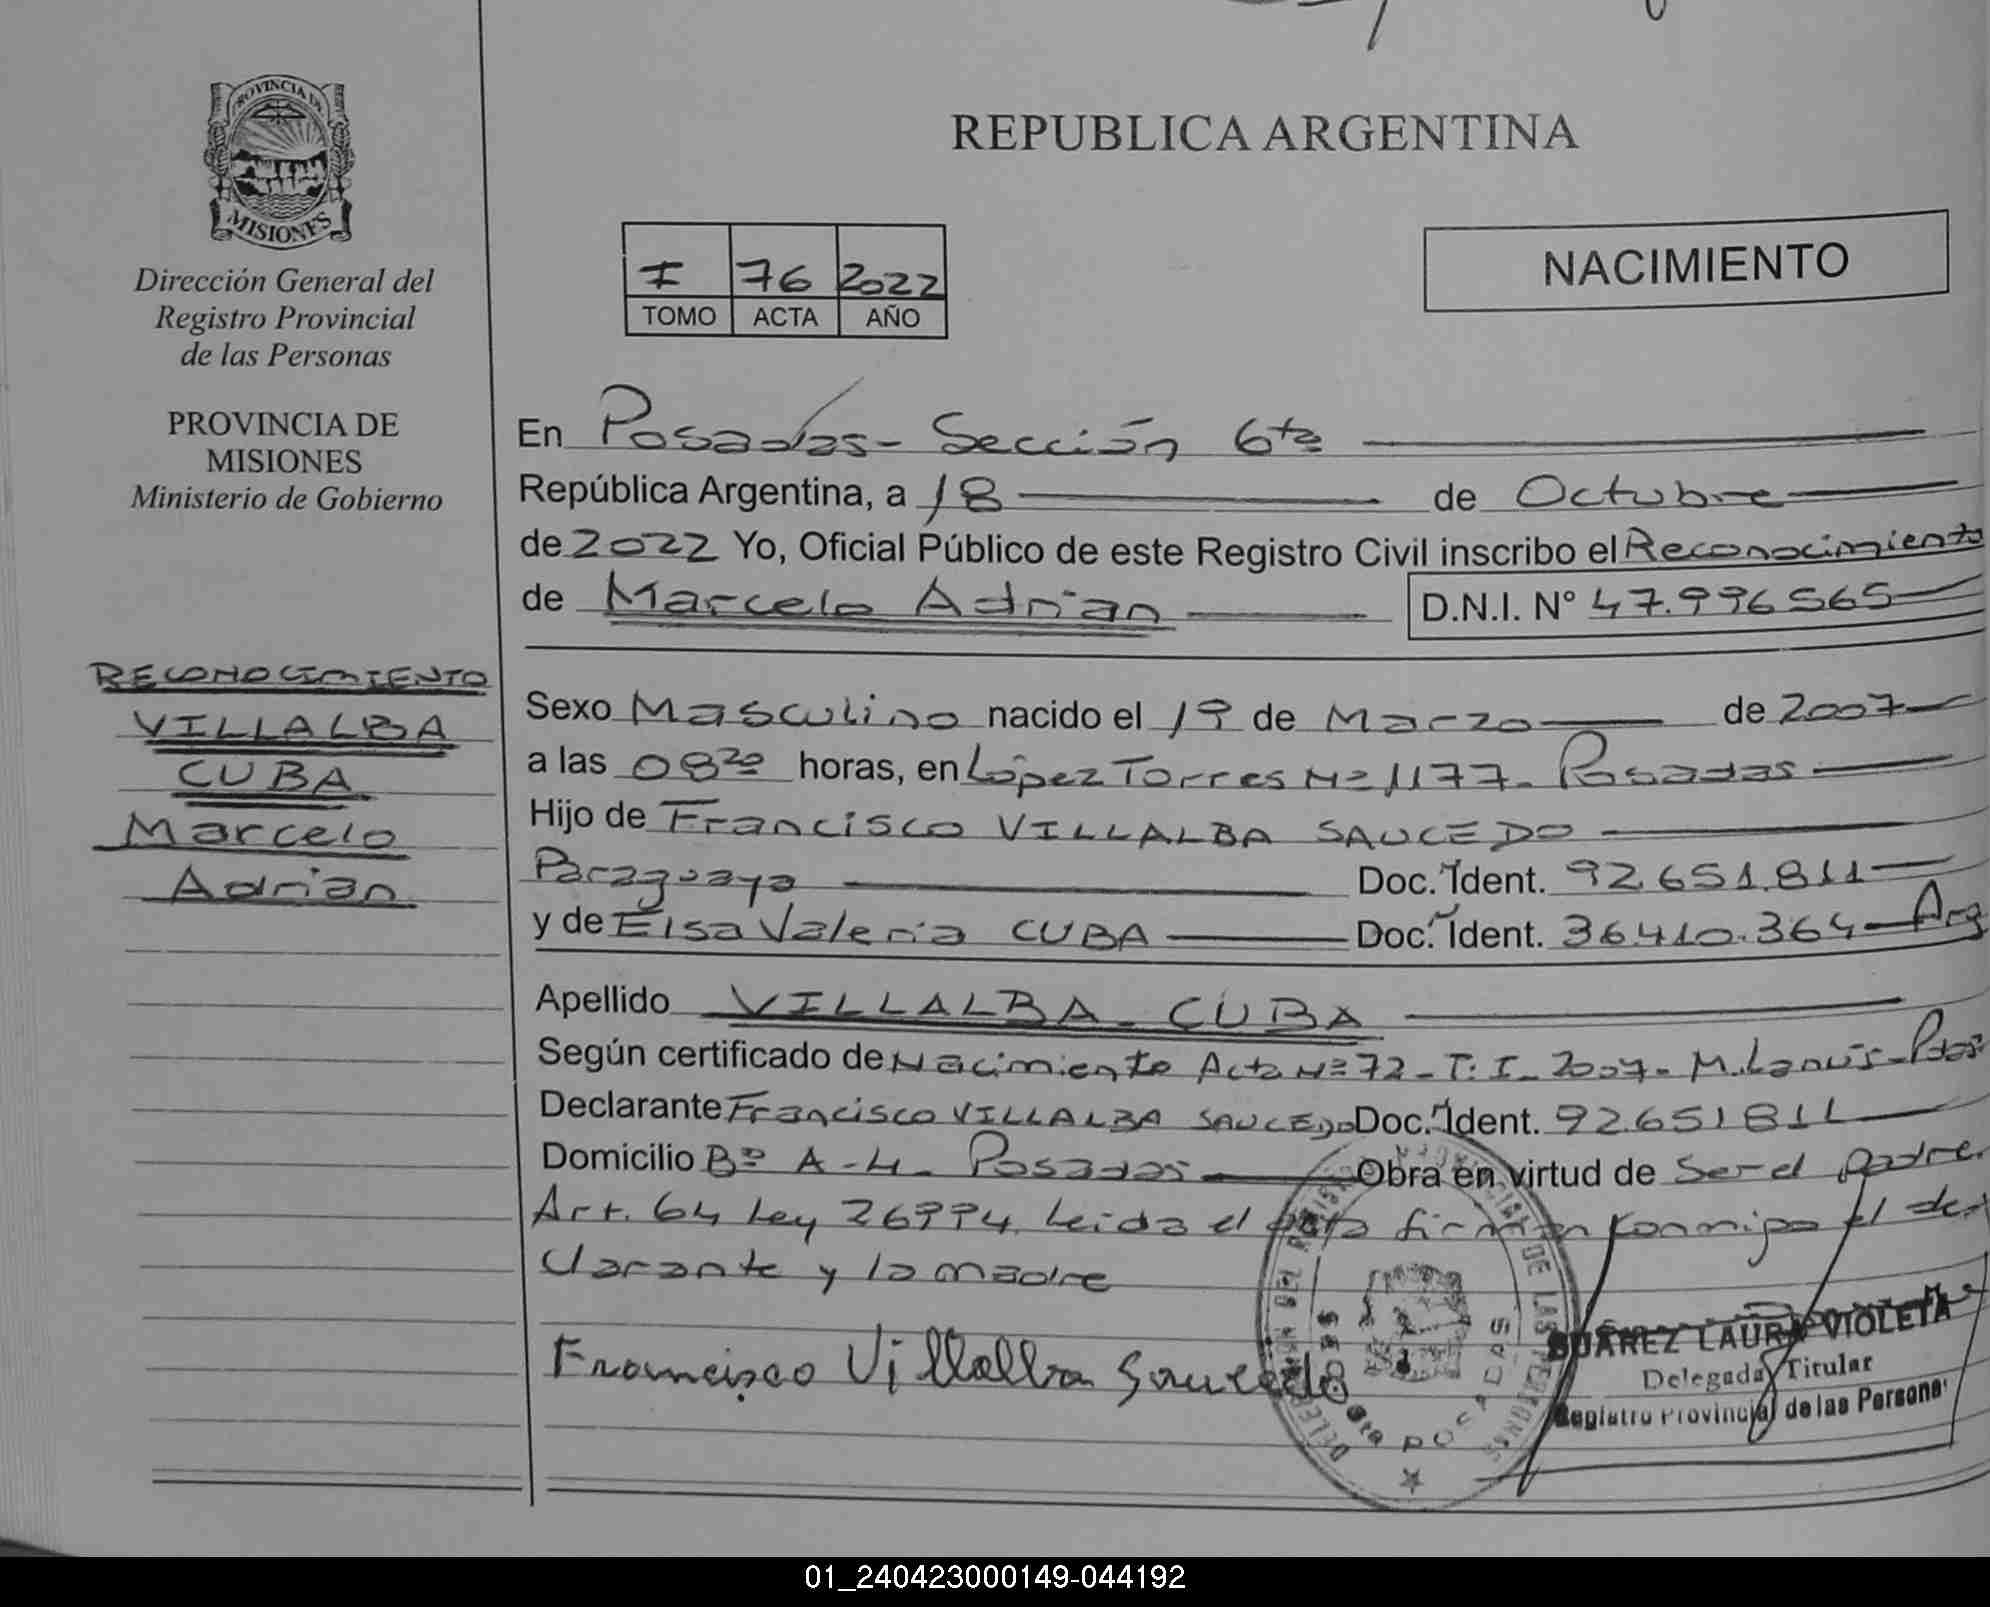 PROVINCIA DE
MISIONES
Dirección General del
Registro Provincial
de las Personas
PROVINCIA DE
MISIONES
Ministerio de Gobierno
RECONOCIMIENTO
VILLALBA
CUBA
Marcelo
Adrian
REPUBLICA ARGENTINA
I 76 2022
TOMO ACTA AÑO
NACIMIENTO
En Posadas - Sección 6ta
República Argentina, a 18 de Octubre
de 2022 Yo, Oficial Público de este Registro Civil inscribo el Reconocimiento
de Marcelo Adrian D.N.I. N° 47.996565
Sexo Masculino nacido el 19 de Marzo de 2007
a las 0820 horas, en López Torres Nº 1177 - Posadas
Hijo de Francisco VILLALBA SAUCEDO
Paraguayo Doc. Ident. 92.651.811
y de Elsa Valeria CUBA Doc. Ident. 36.410.364 Arg
Apellido VILLALBA - CUBA
Según certificado de Nacimiento Acta Nº 72 - T: I - 2007 - M. Lanús - Pdas
Declarante Francisco VILLALBA SAUCEDO Doc. Ident. 92.651811
Domicilio Bº A-4 - Posadas Obra en virtud de Ser el padre.
Art. 64 Ley 26994. Leida el acta firman conmigo el de-
clarante y la madre
Francisco Villalba Saucedo
SUAREZ LAURA VIOLETA
Delegada Titular
Registro Provincial de las Personas
6ta POSADAS
01_240423000149-044192